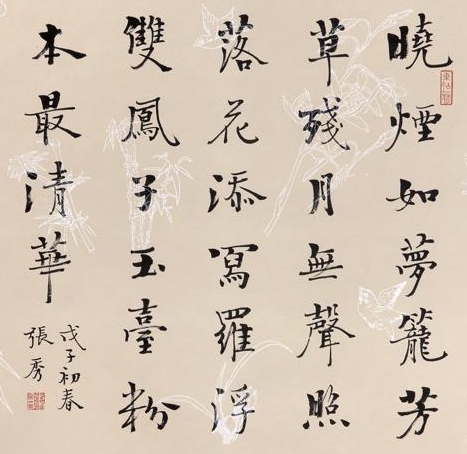 曉煙如夢籠芳
草殘月無聲照
落花添寫羅浮
雙鳳子玉臺粉
本最清華
戊子初春
張秀